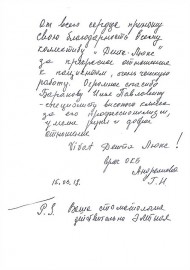 От всего сердца приношу
свою благодарность всему
коллективу "Дента-Люкс"
за прекрасное отношение
к пациентам, отличную
работу. Огромное спасибо
Павловичу
- специалисту высокого класса
за его профессионализм,
умелые руки и доброе
отношение
Vivat Дента Люкс!
врач ОКБ
Андрианова
Г.Н
P.S. Ваша стоматология
действительно